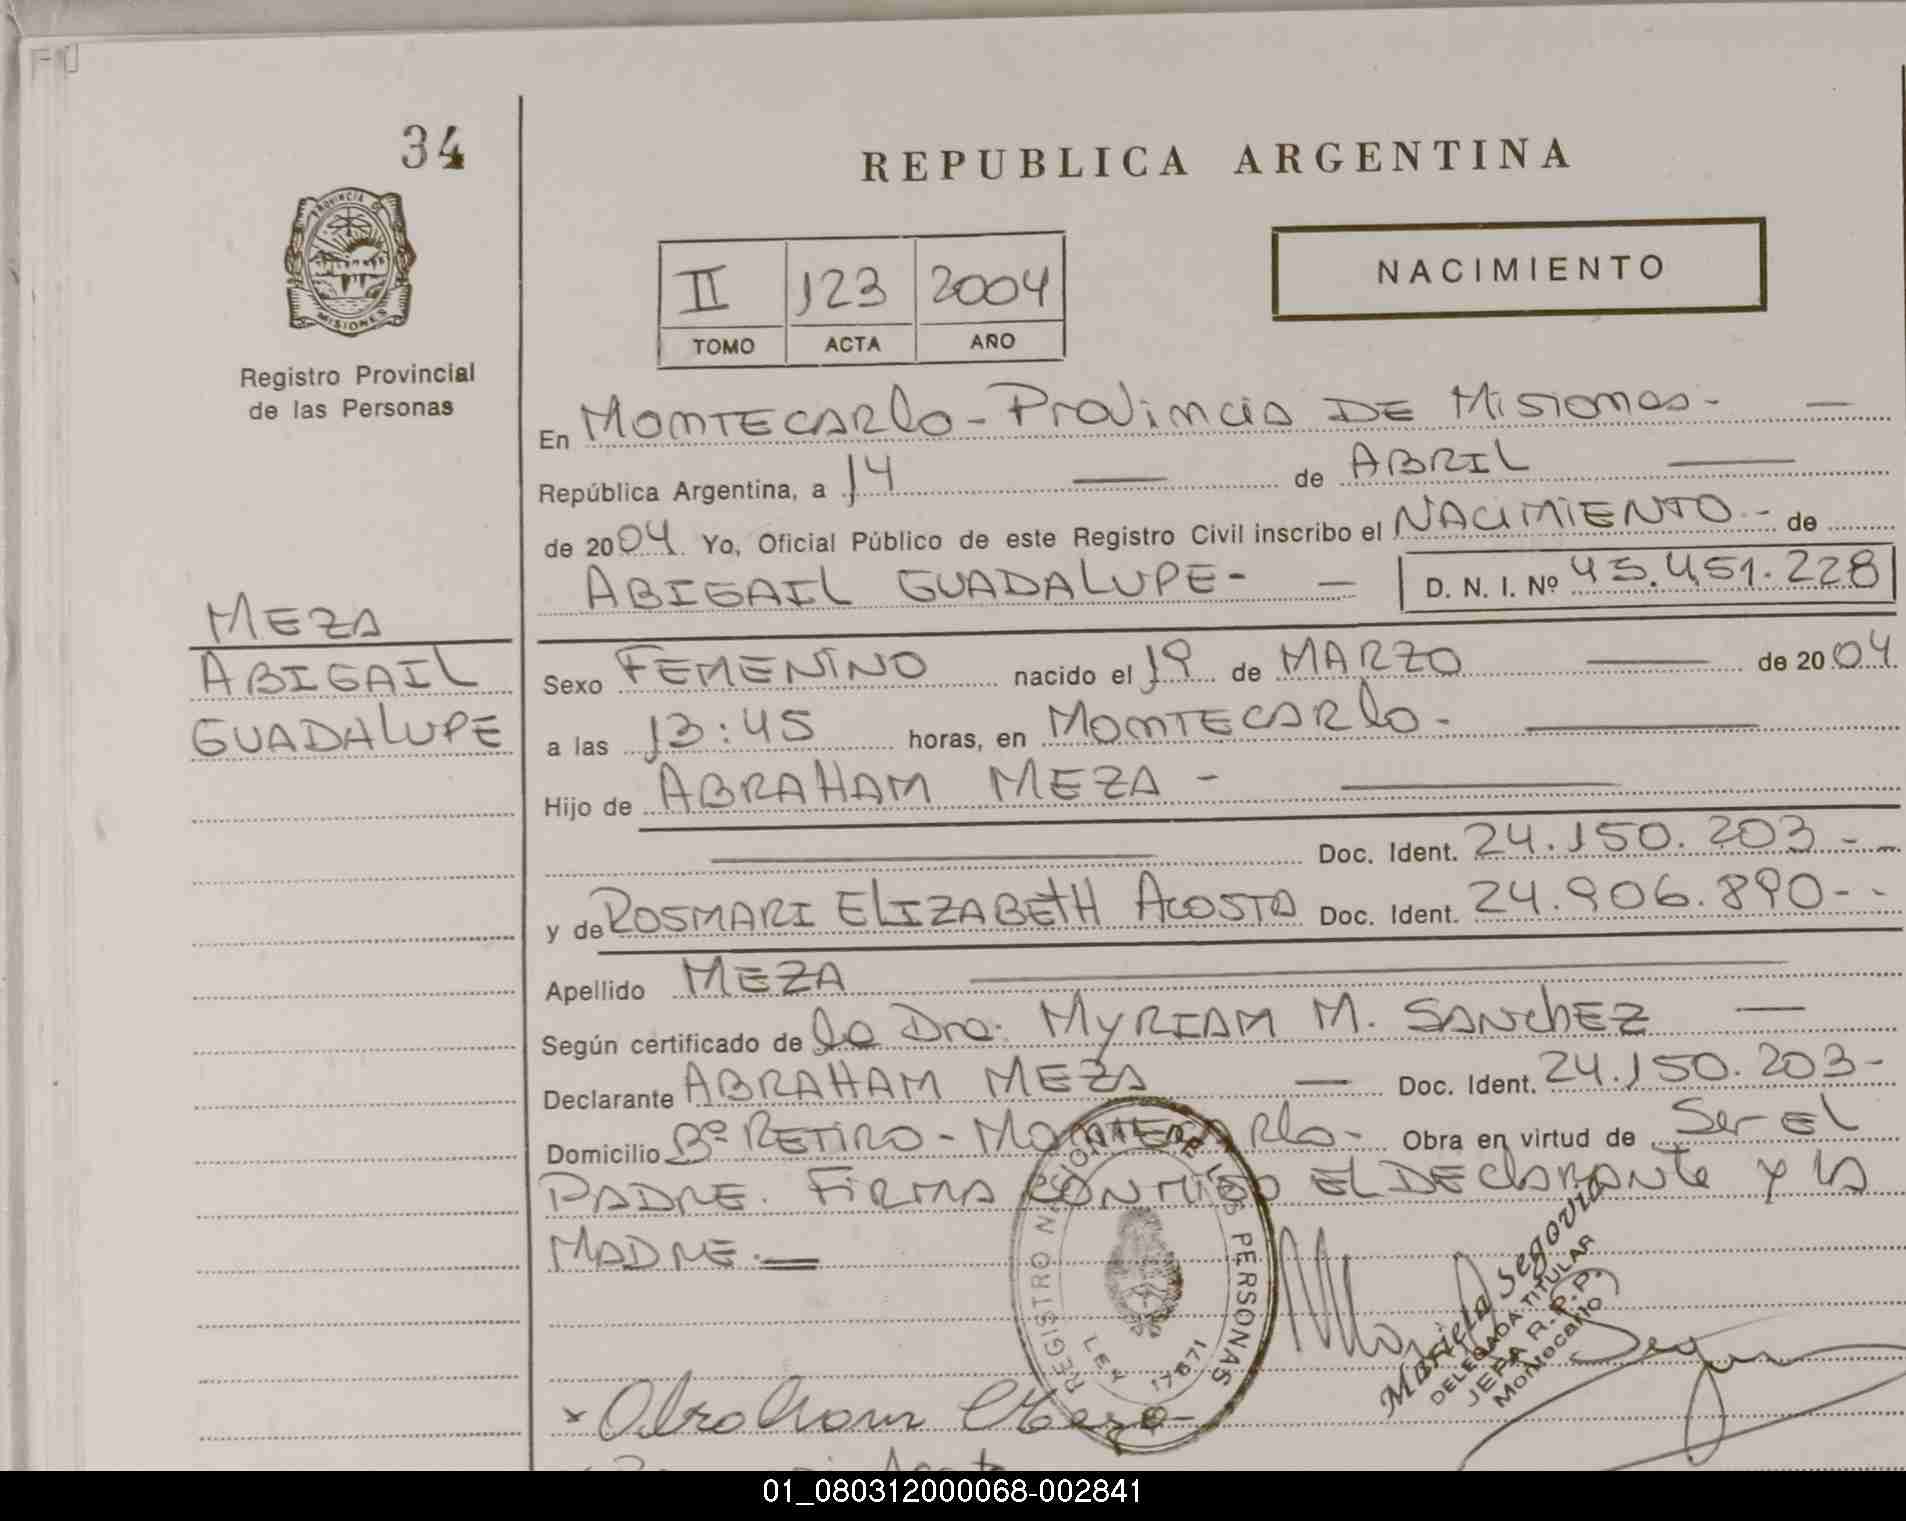 34
REPUBLICA ARGENTINA
PROVINCIA DE
MISIONES
Registro Provincial
de las Personas
II 123 2004
TOMO ACTA AÑO
NACIMIENTO
En MONTECARlo - PROVincia DE Misiones -
República Argentina, a 14 de ABRIL
de 2004 Yo, Oficial Público de este Registro Civil inscribo el NACIMIENTO - de
ABIGAIL GUADALUPE - D. N. I. Nº 45.451.228
MEZA
ABIGAIL
GUADALUPE
Sexo FEMENINO nacido el 19 de MARZO de 2004
a las 13:45 horas, en MONTECARlo -
Hijo de ABRAHAM MEZA -
Doc. Ident. 24.150.203 - -
y de ROSMARI ELIZABETH ACOSTA Doc. Ident. 24.906.890 - -
Apellido MEZA
Según certificado de la Dra. MYRIAM M. SANchEZ
Declarante ABRAHAM MEZA Doc. Ident. 24.150.203 -
Domicilio Bº RETIRO - MONTECARlo - Obra en virtud de Ser EL
PADRE. FIRMA CONMIGO EL DEClARANte Y LA
MADRE. =
REGISTRO NACIONAL DE LAS PERSONAS
LEY 17671
Mariela Segovia
DELEGADA TITULAR
JEFA R.P.P.
Montecarlo
x Abraham Meza
01_080312000068-002841